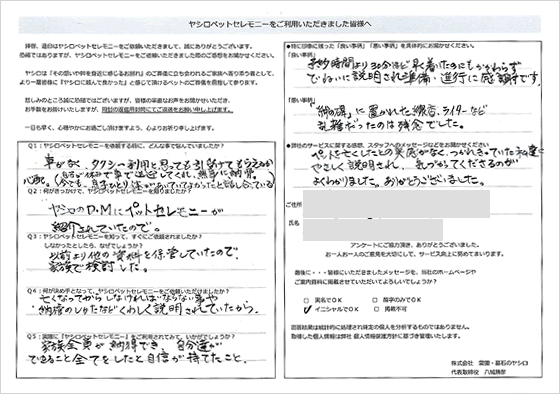 ヤシロペットセレモニーをご利用いただきました皆様へ
拝啓、過日はヤシロペットセレモニーをご依頼いただきまして、誠にありがとうございます。
恐縮ではありますが、ヤシロペットセレモニーをご依頼いただきました際のご感想をお聞かせください。
お手数をお掛けいたしますが、同封の返信用封筒にてご返送をお願い申し上げます。
一日も早く、心穏やかにお過ごし頂けますよう、心よりお祈り申し上げます。
Q1:ヤシロペットセレモニーを依頼する前に、どんな事で悩んでいましたか?
車がなく、タクシー利用と思っても引受けてもらえるか
心配。
Q2:何がきっかけで、ヤシロペットセレモニーを知りましたか?
ヤシロのD.Mにペットセレモニーが
紹介されていたので。
Q3:ヤシロペットセレモニーを知って、すぐにご依頼されましたか?
しなかったとしたら、なぜでしょうか?
以前より他の資料を保管していたので、
家族で検討した。
Q4:何が決め手となって、ヤシロペットセレモニーをご依頼いただけましたか?
亡くなってからしなければならない事や
納棺のしかたなどくわしく説明されていたから。
Q5:実際に「ヤシロペットセレモニー」をご利用されてみて、いかがでしょうか?
家族全員が納得でき、自分達が
できること全てをしたと自信が持てたこと。
●特に印象に残った「良い事柄」「悪い事柄」を具体的にお聞かせください。
「良い事柄」
予約時間より30分ほど早く着いたのにもかかわらず
ていねいに説明され準備・進行に感謝です。
「悪い事柄」
に置かれた線香、ライターなど
乱雑だったのは残念でした。
●弊社のサービスに関する感想、スタッフへのメッセージなどをお聞かせください
ペットを亡くしたとの実感がなく、つかれきっていた私達に
やさしく説明され、気づかってくださるのが
よくわかりました。ありがとうございました。
ご住所
氏名
アンケートにご協力頂き、ありがとうございました。
お一人お一人のご意見を大切にして、サービス向上に努めてまいります。
最後に・・・皆様にいただきましたメッセージを、当社のホームページや
ご案内資料に掲載させていただいてよろしいでしょうか?
□ 実名でOK □ 苗字のみでOK
☑ イニシャルでOK □ 掲載不可
回答結果は統計的に処理され特定の個人を分析するものではありません。
取得した個人情報は弊社 個人情報保護方針に基づき管理いたします。
株式会社 霊園・墓石のヤシロ
代表取締役 八城勝彦